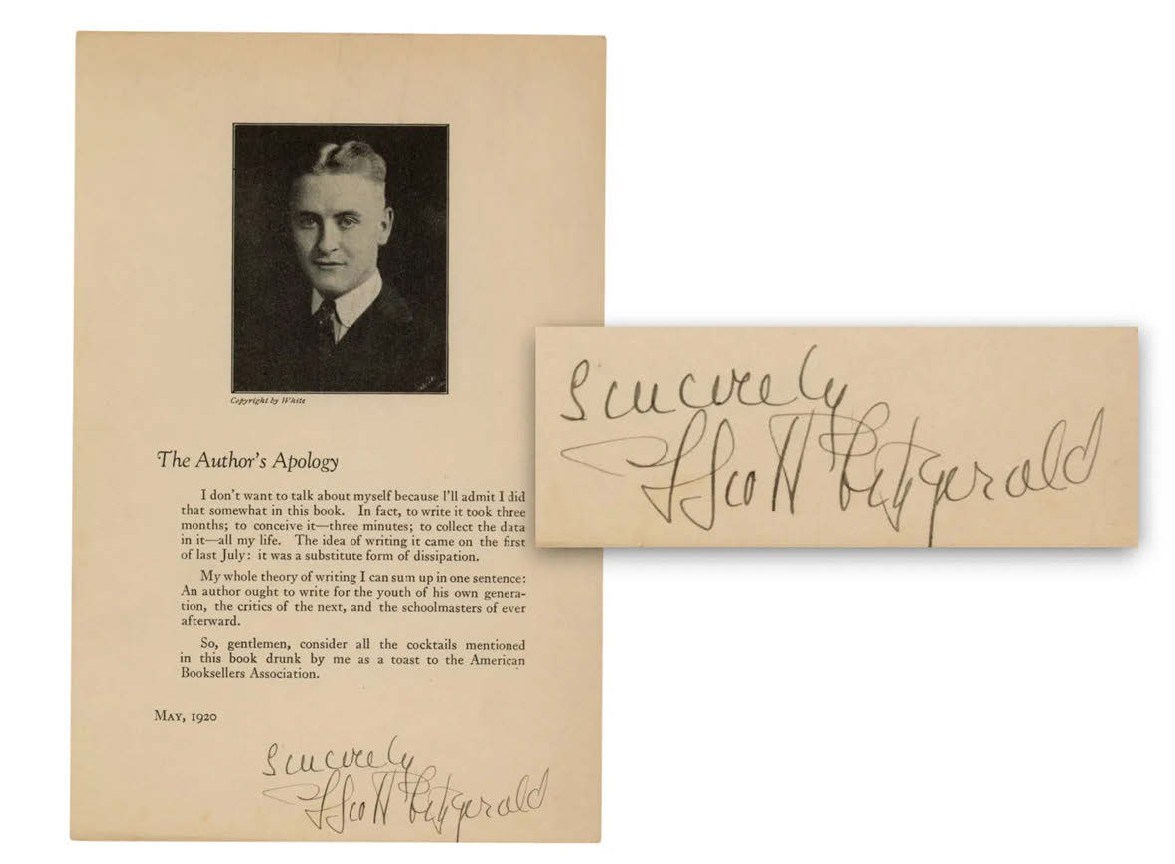 Copyright by White
The Author's Apology
I don't want to talk about myself because I'll admit I did
that somewhat in this book. In fact, to write it took three
months; to conceive it—three minutes; to collect the data
in it—all my life. The idea of writing it came on the first
of last July: it was a substitute form of dissipation.
My whole theory of writing I can sum up in one sentence:
An author ought to write for the youth of his own genera-
tion, the critics of the next, and the schoolmasters of ever
afterward.
So, gentlemen, consider all the cocktails mentioned
in this book drunk by me as a toast to the American
Booksellers Association.
May, 1920
Sincerely
F Scott Fitzgerald
Sincerely
F Scott Fitzgerald